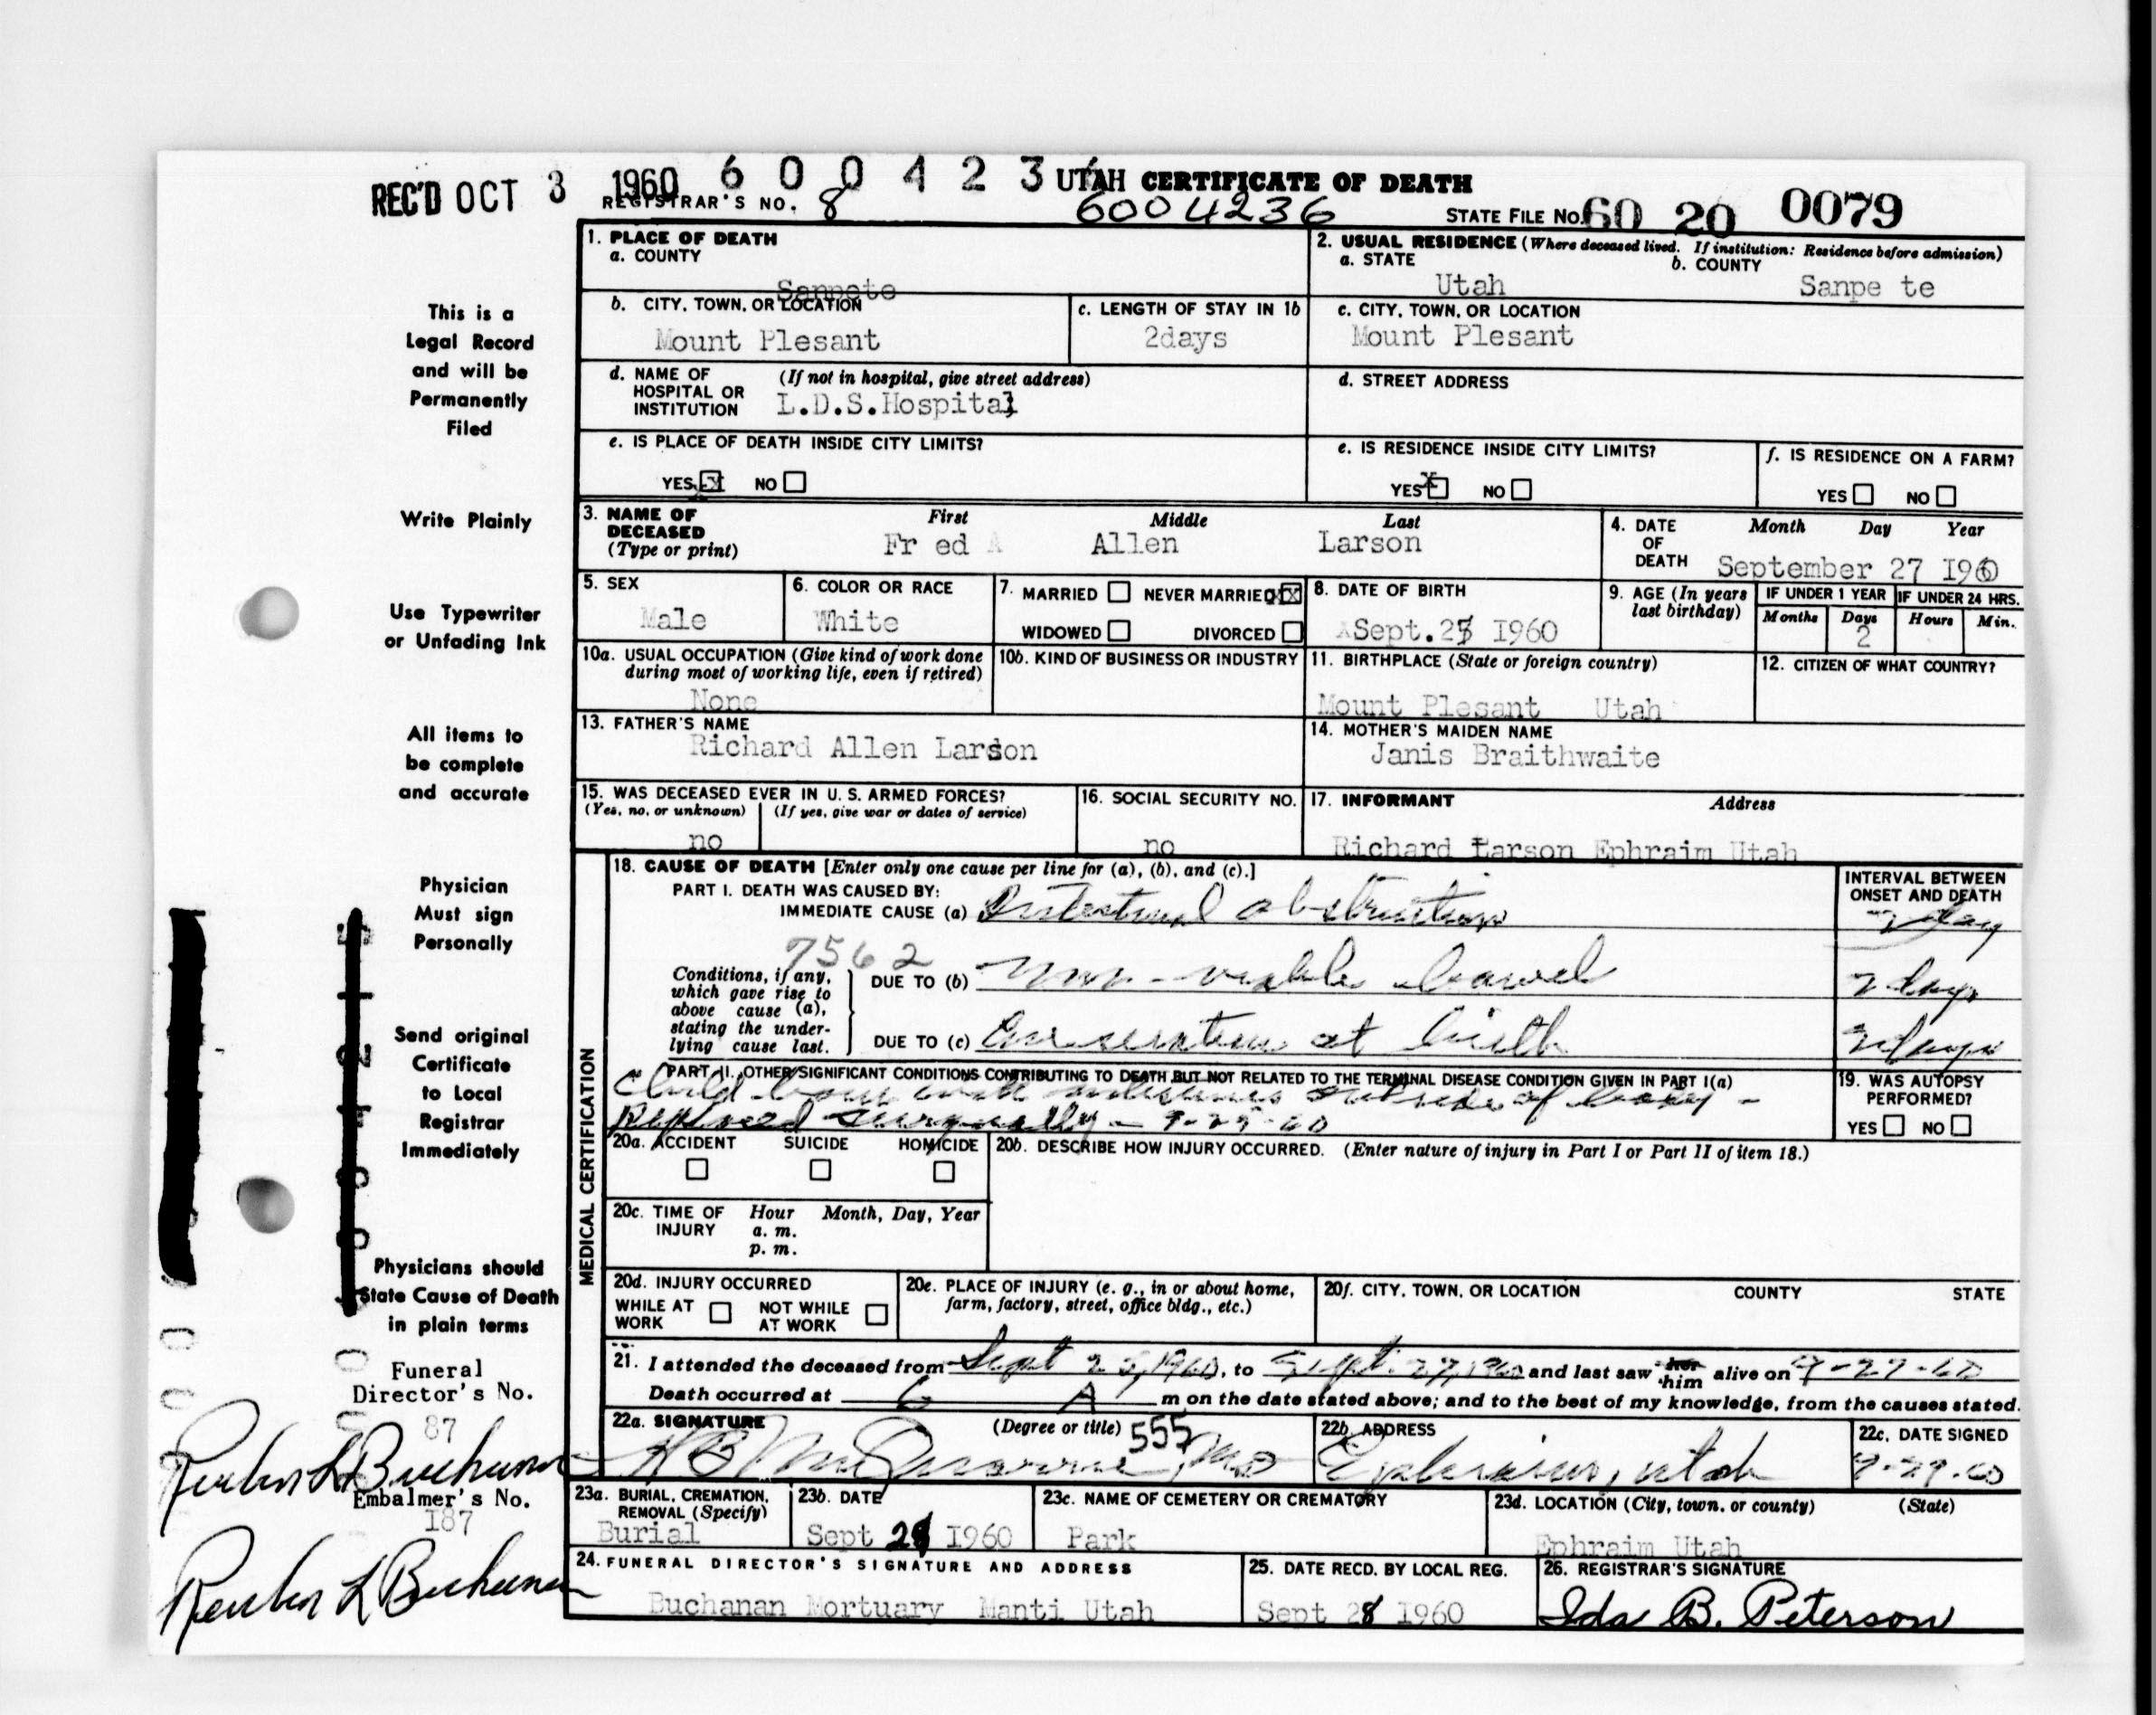 REC'D OCT 3 1960 6 0 0 4 2 3 6 UTAH CERTIFICATE OF DEATH
REGISTRAR'S NO. 8 6004236 STATE FILE No. 60 20 0079
This is a
Legal Record
and will be
Permanently
Filed
Write Plainly
Use Typewriter
or Unfading Ink
All items to
be complete
and accurate
Physician
Must sign
Personally
Send original
Certificate
to Local
Registrar
Immediately
Physicians should
State Cause of Death
in plain terms
Funeral
Director's No.
87
Reuben L Buchanan
Embalmer's No.
I87
Reuben L Buchanan
1. PLACE OF DEATH
a. COUNTY
Sanpete
2. USUAL RESIDENCE (Where deceased lived. If institution: Residence before admission)
a. STATE b. COUNTY
Utah Sanpe te
b. CITY, TOWN, OR LOCATION
Mount Plesant
c. LENGTH OF STAY IN 1b
2days
c. CITY, TOWN, OR LOCATION
Mount Plesant
d. NAME OF (If not in hospital, give street address)
HOSPITAL OR
INSTITUTION L.D.S.Hospital
d. STREET ADDRESS
e. IS PLACE OF DEATH INSIDE CITY LIMITS?
YES X NO
e. IS RESIDENCE INSIDE CITY LIMITS?
YES X NO
f. IS RESIDENCE ON A FARM?
YES NO
3. NAME OF First Middle Last
DECEASED
(Type or print) Fr ed Allen Larson
4. DATE Month Day Year
OF
DEATH September 27 I960
5. SEX
Male
6. COLOR OR RACE
White
7. MARRIED NEVER MARRIED X
WIDOWED DIVORCED
8. DATE OF BIRTH
Sept.25 I960
9. AGE (In years
last birthday)
IF UNDER 1 YEAR IF UNDER 24 HRS.
Months Days Hours Min.
2
10a. USUAL OCCUPATION (Give kind of work done
during most of working life, even if retired)
None
10b. KIND OF BUSINESS OR INDUSTRY
11. BIRTHPLACE (State or foreign country)
Mount Plesant Utah
12. CITIZEN OF WHAT COUNTRY?
13. FATHER'S NAME
Richard Allen Larson
14. MOTHER'S MAIDEN NAME
Janis Braithwaite
15. WAS DECEASED EVER IN U. S. ARMED FORCES?
(Yes, no, or unknown) (If yes, give war or dates of service)
no
16. SOCIAL SECURITY NO.
no
17. INFORMANT Address
Richard Larson Ephraim Utah
MEDICAL CERTIFICATION
18. CAUSE OF DEATH [Enter only one cause per line for (a), (b), and (c).]
PART I. DEATH WAS CAUSED BY:
IMMEDIATE CAUSE (a) Intestinal obstruction
INTERVAL BETWEEN
ONSET AND DEATH
2 day
7562
Conditions, if any,
which gave rise to
above cause (a),
stating the under-
lying cause last.
DUE TO (b) non-viable bowel
2 days
DUE TO (c) Evisceration at birth
2 days
PART II. OTHER SIGNIFICANT CONDITIONS CONTRIBUTING TO DEATH BUT NOT RELATED TO THE TERMINAL DISEASE CONDITION GIVEN IN PART I(a)
Child born with intestines outside of body -
Replaced surgically - 9-25-60
19. WAS AUTOPSY
PERFORMED?
YES NO
20a. ACCIDENT SUICIDE HOMICIDE
20b. DESCRIBE HOW INJURY OCCURRED. (Enter nature of injury in Part I or Part II of item 18.)
20c. TIME OF Hour Month, Day, Year
INJURY a. m.
p. m.
20d. INJURY OCCURRED
WHILE AT NOT WHILE
WORK AT WORK
20e. PLACE OF INJURY (e. g., in or about home,
farm, factory, street, office bldg., etc.)
20f. CITY, TOWN, OR LOCATION COUNTY STATE
21. I attended the deceased from Sept 25, 1960, to Sept. 27, 1960 and last saw her him alive on 9-27-60
Death occurred at 6 A m on the date stated above; and to the best of my knowledge, from the causes stated.
22a. SIGNATURE (Degree or title) 555
H B MD
22b. ADDRESS
Ephraim, Utah
22c. DATE SIGNED
9-29-60
23a. BURIAL, CREMATION,
REMOVAL (Specify)
Burial
23b. DATE
Sept 28 I960
23c. NAME OF CEMETERY OR CREMATORY
Park
23d. LOCATION (City, town, or county) (State)
Ephraim Utah
24. FUNERAL DIRECTOR'S SIGNATURE AND ADDRESS
Buchanan Mortuary Manti Utah
25. DATE RECD. BY LOCAL REG.
Sept 28 I960
26. REGISTRAR'S SIGNATURE
Ida B. Peterson